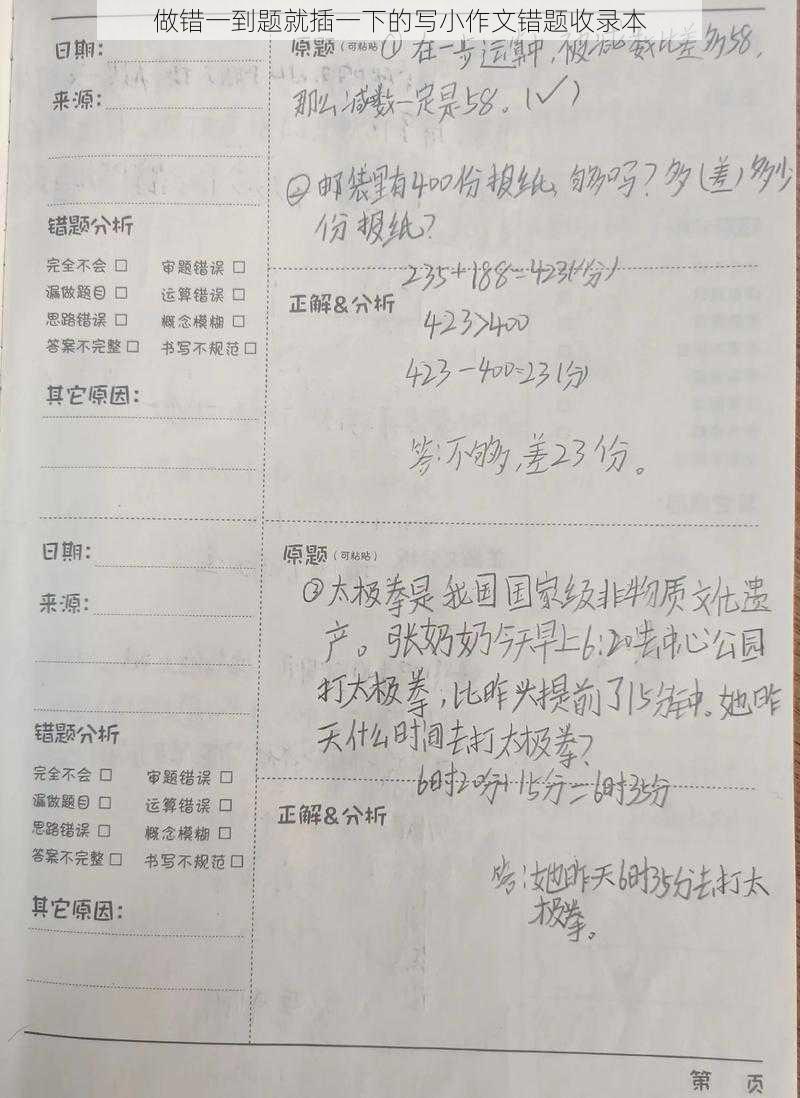 做错一到题就插一下的写小作文错题收录本
日期:
来源:
原题(可粘贴)① 在一步运算中,被减数比差多58,
那么减数一定是58。(✓)
② 邮袋里有400份报纸,够吗?多(差)多少
份报纸?
错题分析
完全不会 □ 审题错误 □
漏做题目 □ 运算错误 □
思路错误 □ 概念模糊 □
答案不完整 □ 书写不规范 □
其它原因:
正解&分析
235+188=423(份)
423>400
423-400=23(份)
答:不够,差23份。
日期:
来源:
原题(可粘贴)
③太极拳是我国国家级非物质文化遗
产。张奶奶今天早上6:20去中心公园
打太极拳,比昨天提前了15分钟。她昨
天什么时间去打太极拳?
错题分析
完全不会 □ 审题错误 □
漏做题目 □ 运算错误 □
思路错误 □ 概念模糊 □
答案不完整 □ 书写不规范 □
其它原因:
正解&分析
6时20分+15分=6时35分
答:她昨天6时35分去打太
极拳。
第 页